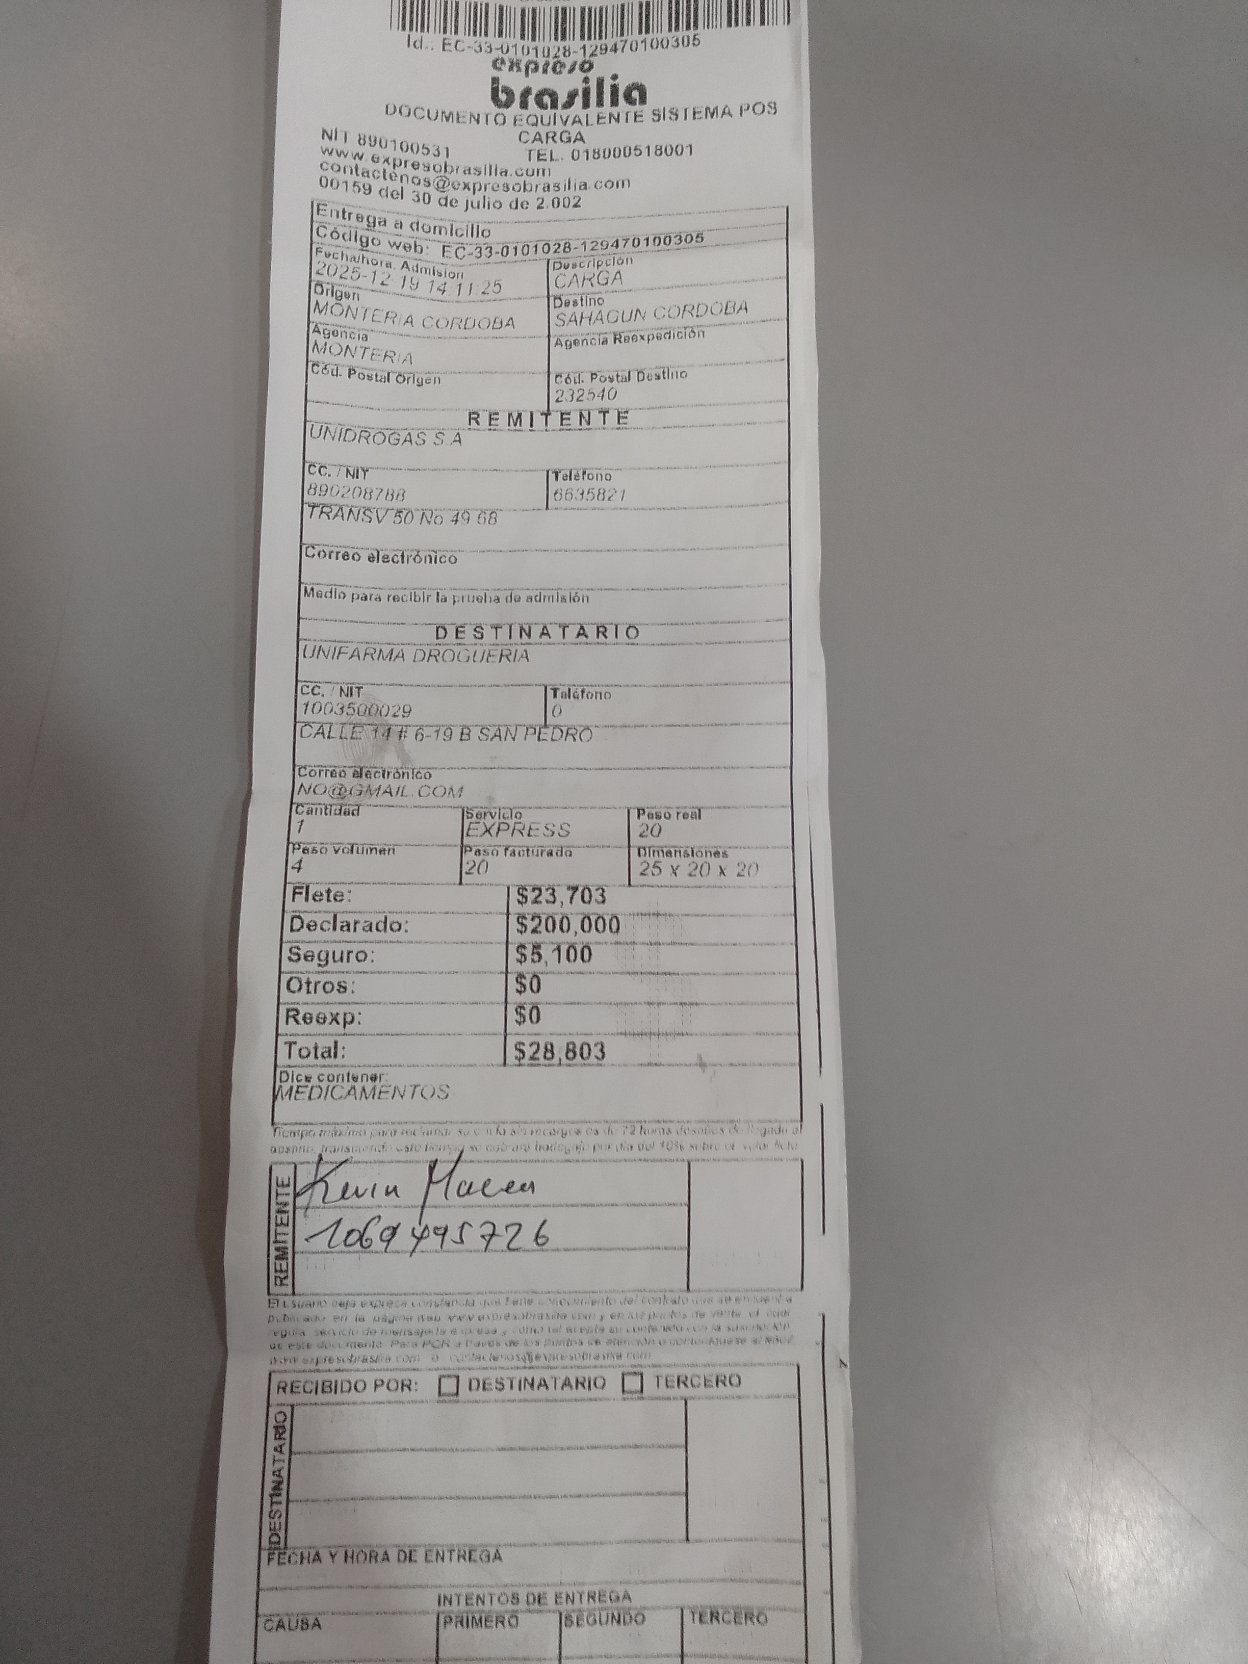 Id.: EC-33-0101028-129470100305
expreso
brasilia
DOCUMENTO EQUIVALENTE SISTEMA POS
CARGA
NIT 890100531 TEL. 018000518001
www.expresobrasilia.com
contactenos@expresobrasilia.com
00159 del 30 de julio de 2.002
Entrega a domicilio
Código web: EC-33-0101028-129470100305
Fecha/hora. Admision Descripción
2025-12-19 14:11:25 CARGA
Origen Destino
MONTERIA CORDOBA SAHAGUN CORDOBA
Agencia Agencia Reexpedición
MONTERIA
Cód. Postal Origen Cód. Postal Destino
232540
REMITENTE
UNIDROGAS S.A
CC. / NIT Teléfono
890208788 6635821
TRANSV 50 No 49 68
Correo electrónico
Medio para recibir la prueba de admisión
DESTINATARIO
UNIFARMA DROGUERIA
CC. / NIT Teléfono
1003500029 0
CALLE 14 # 6-19 B SAN PEDRO
Correo electrónico
NO@GMAIL.COM
Cantidad Servicio Peso real
1 EXPRESS 20
Peso volumen Peso facturado Dimensiones
4 20 25 x 20 x 20
Flete: $23,703
Declarado: $200,000
Seguro: $5,100
Otros: $0
Reexp: $0
Total: $28,803
Dice contener:
MEDICAMENTOS
Tiempo máximo para reclamar su es de 72 horas después de llegado al
transcurrido este tiempo se cobrará bodegaje por día del 10% sobre el valor flete
REMITENTE
Kevin
1069495726
El usuario deja expresa constancia que tiene conocimiento del contrato que se encuentra
publicado en la página web www.expresobrasilia.com y en los puntos de venta, el cual
regula servicio de mensajería expresa y cuyo contenido con la suscripción
de este documento. Para PQR a través de los puntos de atención o
www.expresobrasilia.com o contactenos@expresobrasilia.com
RECIBIDO POR: DESTINATARIO TERCERO
DESTINATARIO
FECHA Y HORA DE ENTREGA
INTENTOS DE ENTREGA
CAUSA PRIMERO SEGUNDO TERCERO